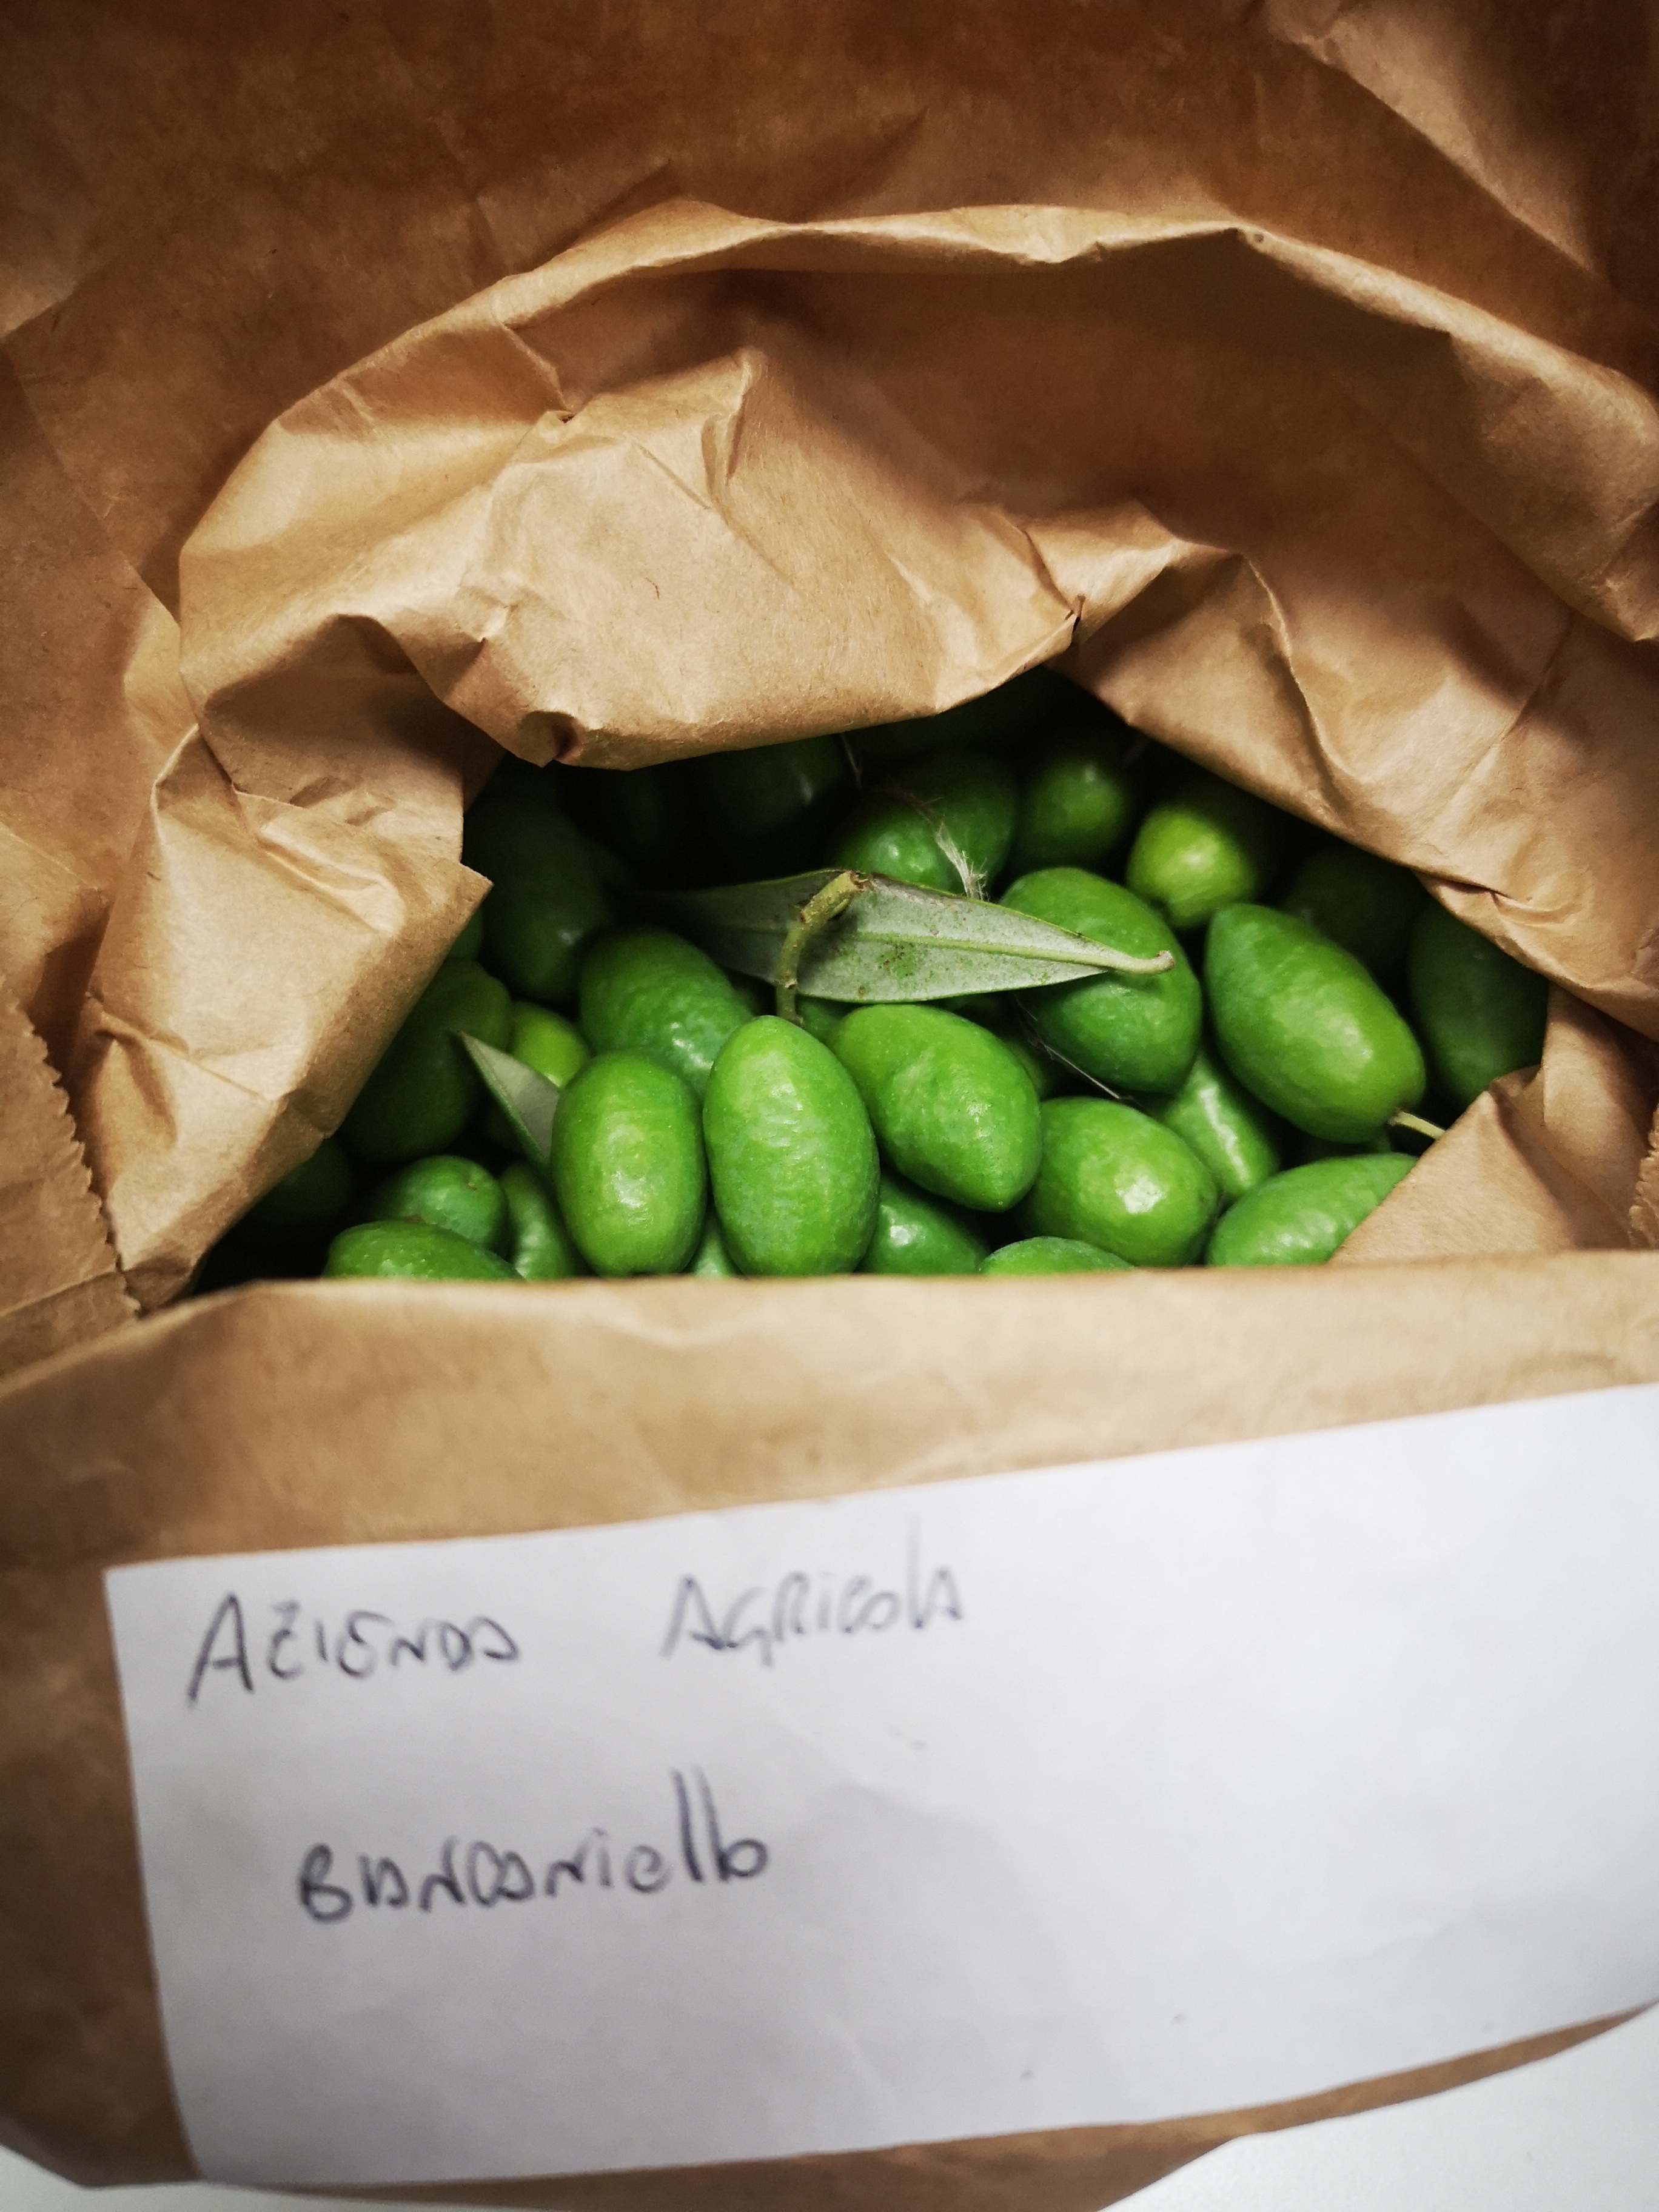 AZIENDA AGRICOLA
BIANCANIELLO